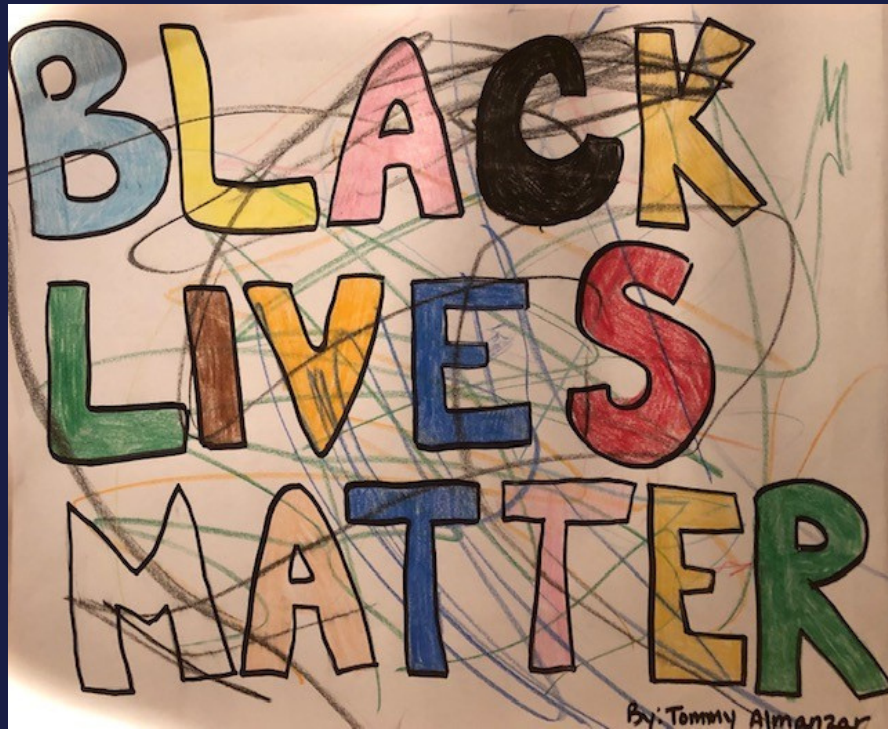 BLACK
LIVES
MATTER
By: Tommy Almanzar